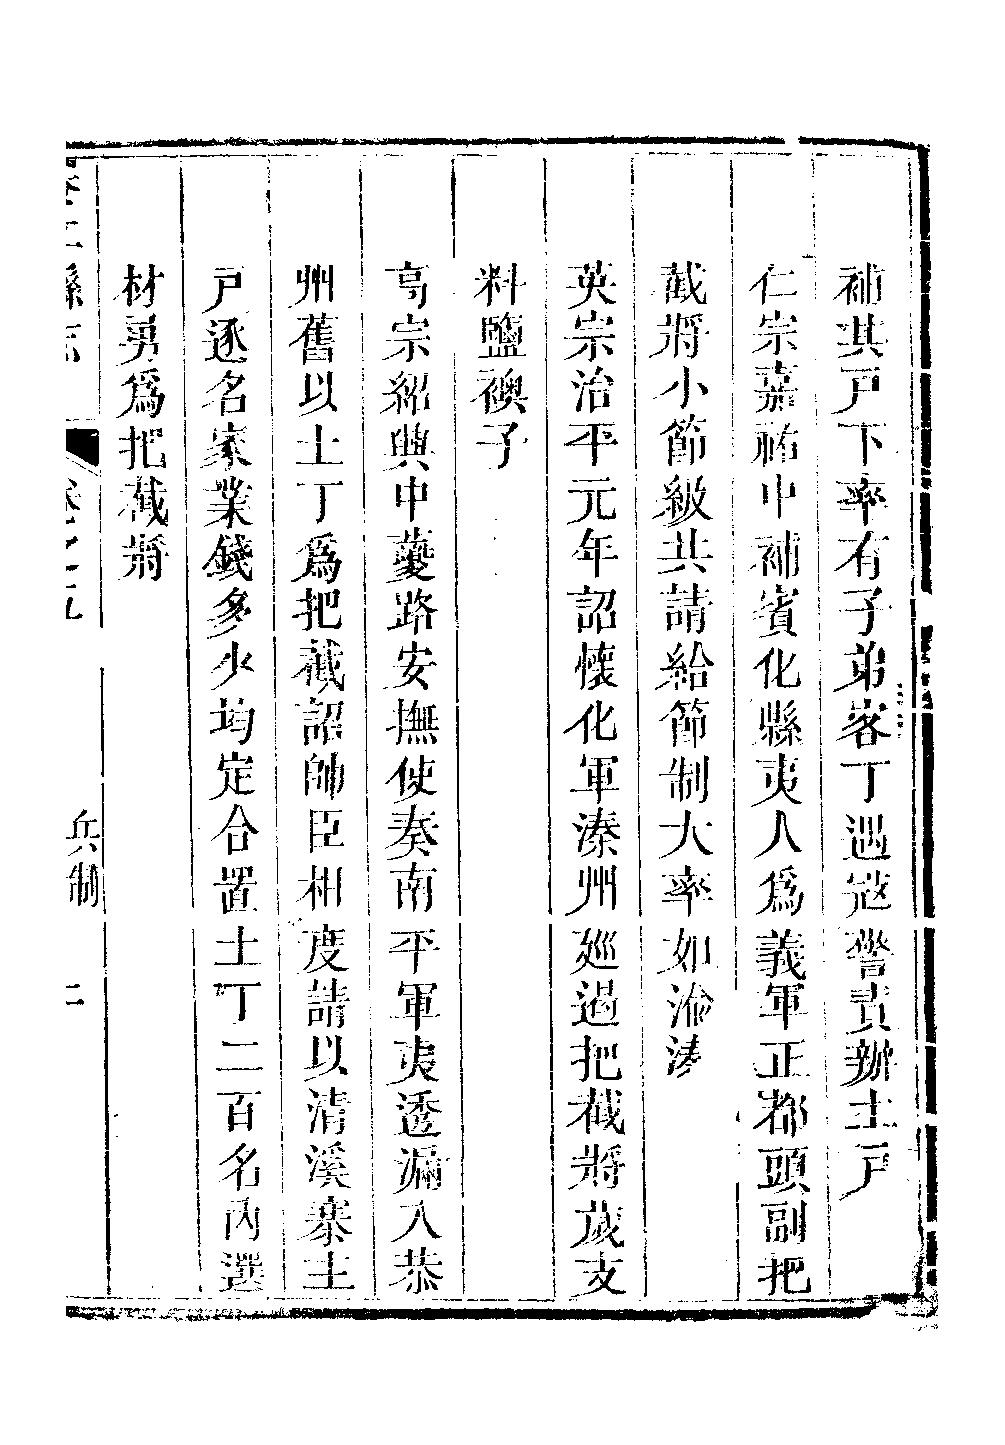 補其戸下率有子弟客丁遇寇警責辦土戸
仁宗嘉祐中補賓化縣夷人爲義軍正都頭副把
截將小節級共請給節制大率如渝溱
英宗治平元年詔懷化軍溱州廵遏把截將歲支
料鹽襖子
高宗紹興中夔路安撫使奏南平軍夷透漏入恭
州舊以土丁爲把截詔帥臣相度請以清溪寨主
戸逐名家業錢多少均定合置土丁二百名內選
材勇爲把截將
縣志 卷之五 兵制 二